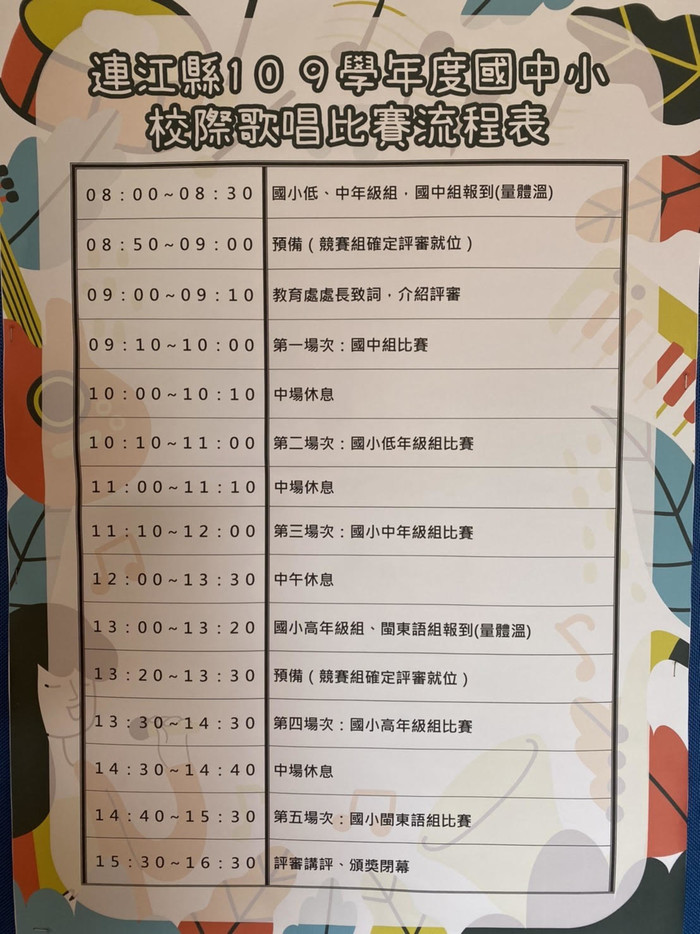 連江縣109學年度國中小
校際歌唱比賽流程表
08：00~08：30 國小低、中年級組，國中組報到(量體溫)
08：50~09：00 預備（競賽組確定評審就位）
09：00~09：10 教育處處長致詞，介紹評審
09：10~10：00 第一場次：國中組比賽
10：00~10：10 中場休息
10：10~11：00 第二場次：國小低年級組比賽
11：00~11：10 中場休息
11：10~12：00 第三場次：國小中年級組比賽
12：00~13：30 中午休息
13：00~13：20 國小高年級組、閩東語組報到(量體溫)
13：20~13：30 預備（競賽組確定評審就位）
13：30~14：30 第四場次：國小高年級組比賽
14：30~14：40 中場休息
14：40~15：30 第五場次：國小閩東語組比賽
15：30~16：30 評審講評、頒獎閉幕